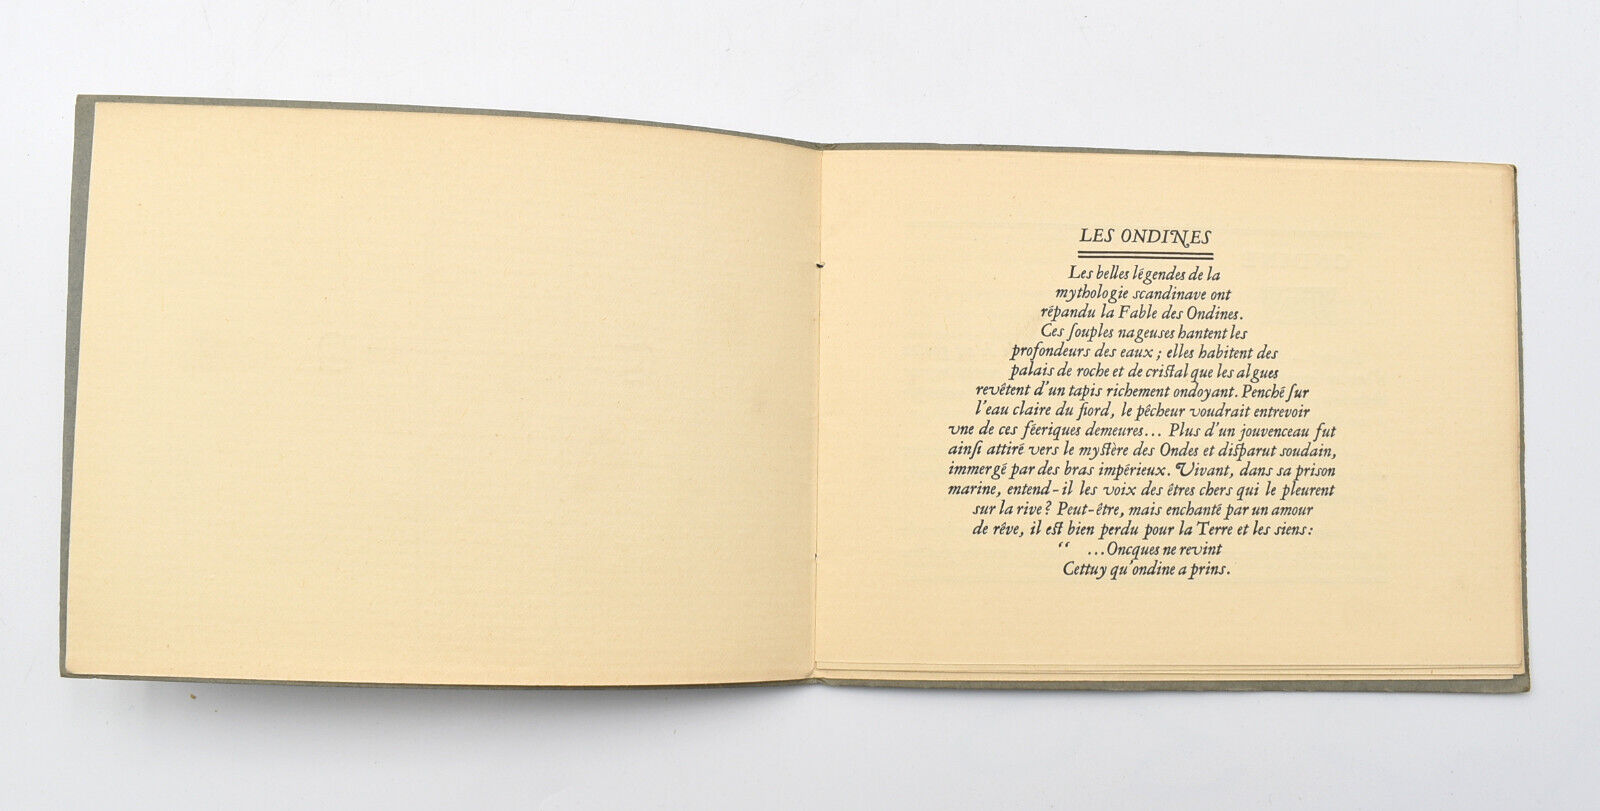 LES ONDINES
Les belles légendes de la
mythologie scandinave ont
répandu la Fable des Ondines.
Ces ſouples nageuses hantent les
profondeurs des eaux ; elles habitent des
palais de roche et de cristal que les algues
revêtent d'un tapis richement ondoyant. Penché ſur
l'eau claire du fiord, le pêcheur voudrait entrevoir
vne de ces féeriques demeures... Plus d'un jouvenceau fut
ainſi attiré vers le mystère des Ondes et disparut soudain,
immergé par des bras impérieux. Vivant, dans sa prison
marine, entend-il les voix des êtres chers qui le pleurent
sur la rive ? Peut-être, mais enchanté par un amour
de rêve, il est bien perdu pour la Terre et les siens :
“ ...Oncques ne revint
Cettuy qu'ondine a prins.